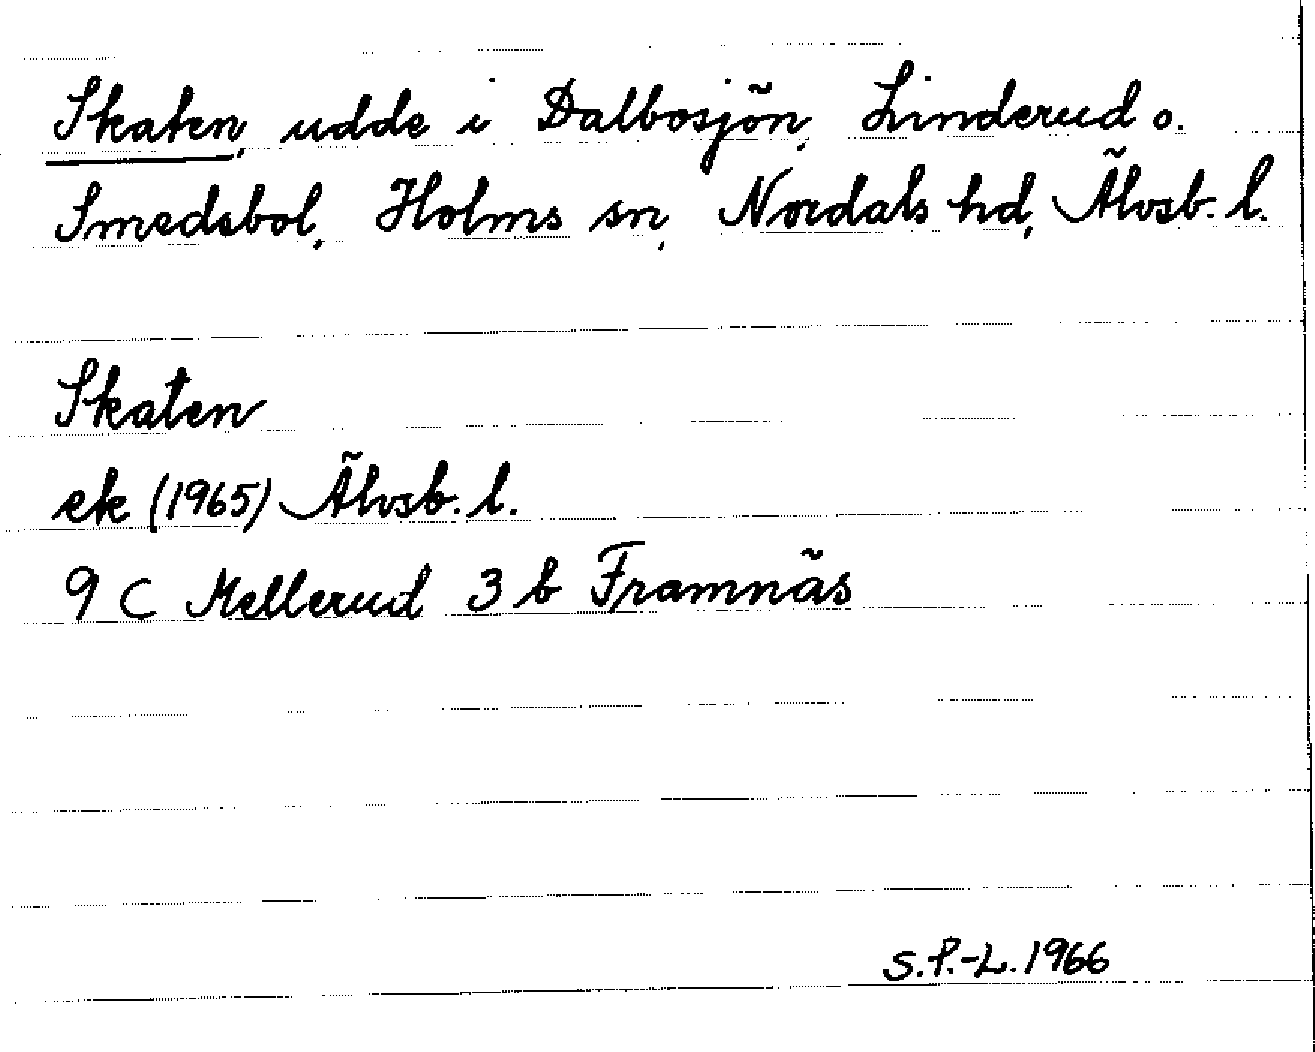 Skaten, udde i Dalbosjön, Linderud o.
Smedsbol, Holms sn, Nordals hd, Älvsb. l.
Skaten
ek (1965) Älvsb. l.
9 C Mellerud 3 b Framnäs
S.P.-L. 1966